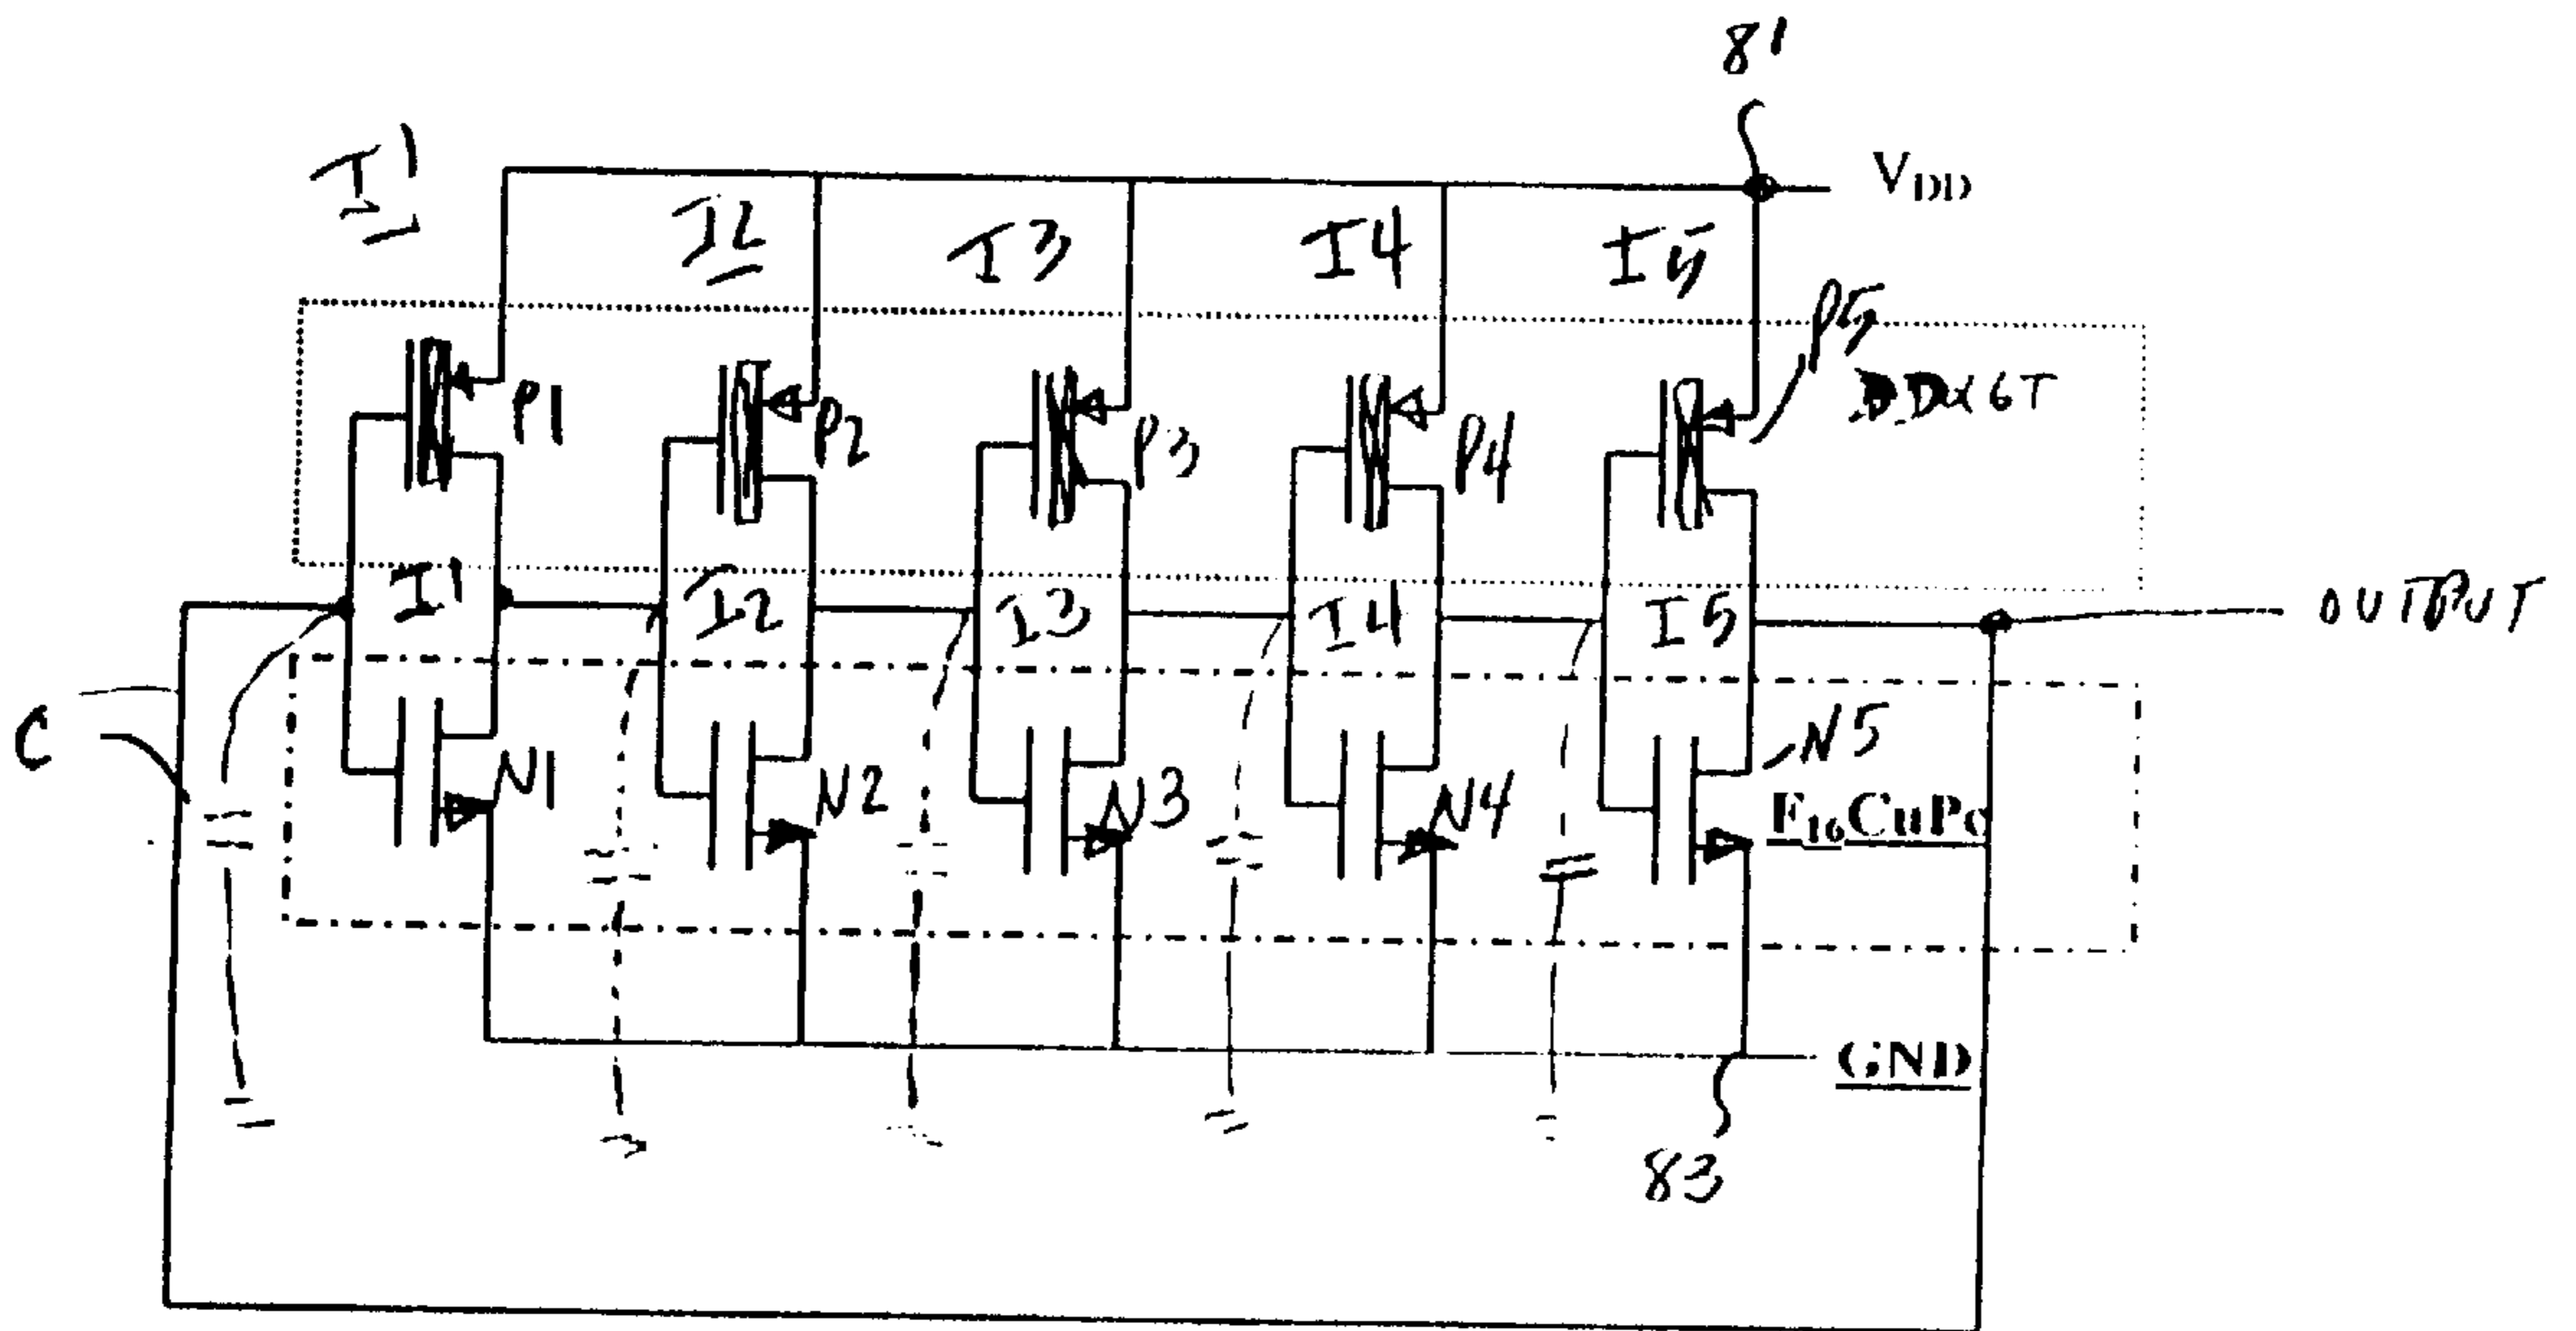 81
V_DD
I1
I2
I3
I4
I5
P5
P1
P2
P3
P4
DDα6T
I1
I2
I3
I4
I5
OUTPUT
C
N1
N2
N3
N4
N5
F₁₆CuPc
GND
83